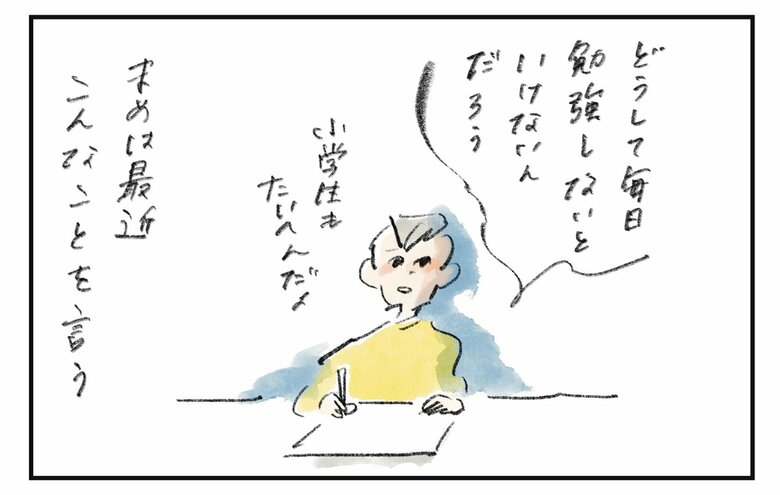 どうして毎日
勉強しないと
いけないん
だろう
小学生も
たいへんだよ
まめは最近
こんなことを言う